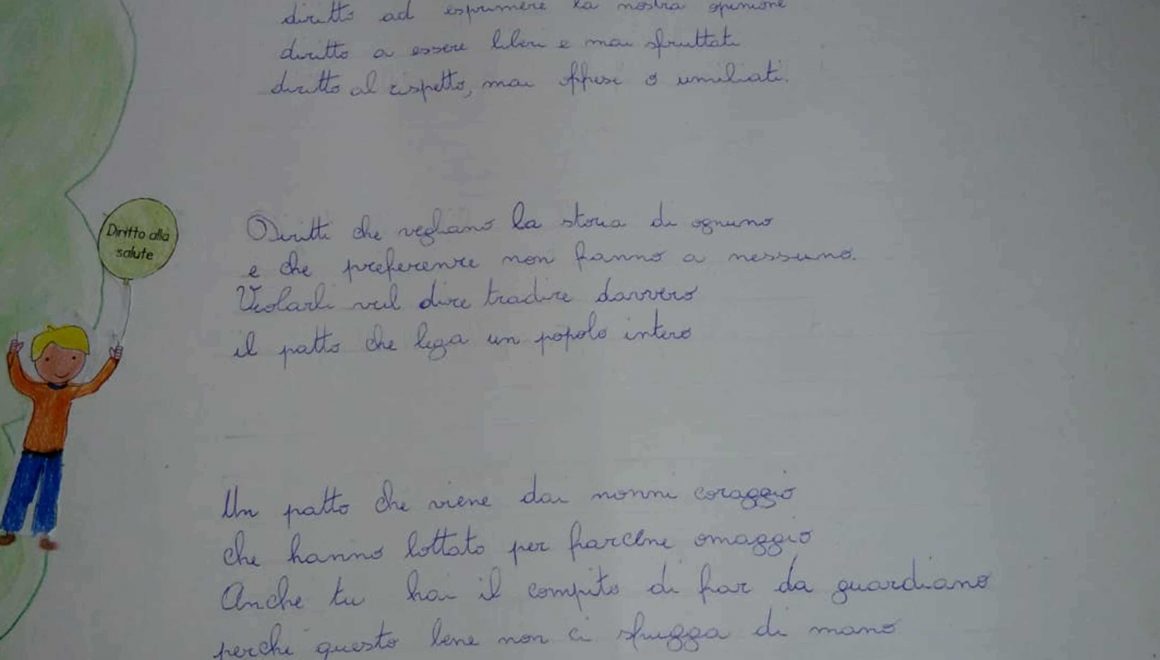 diritto ad esprimere la nostra opinione
diritto a essere liberi e mai sfruttati
diritto al rispetto, mai offesi o umiliati.
Diritto alla
salute
Diritti che vegliano la storia di ognuno
e che preferenze non fanno a nessuno.
Violarli vul dire tradire davvero
il patto che lega un popolo intero
Un patto che viene dai nonni coraggio
che hanno lottato per farcene omaggio
Anche tu hai il compito di far da guardiano
perchè questo bene non ci sfugga di mano